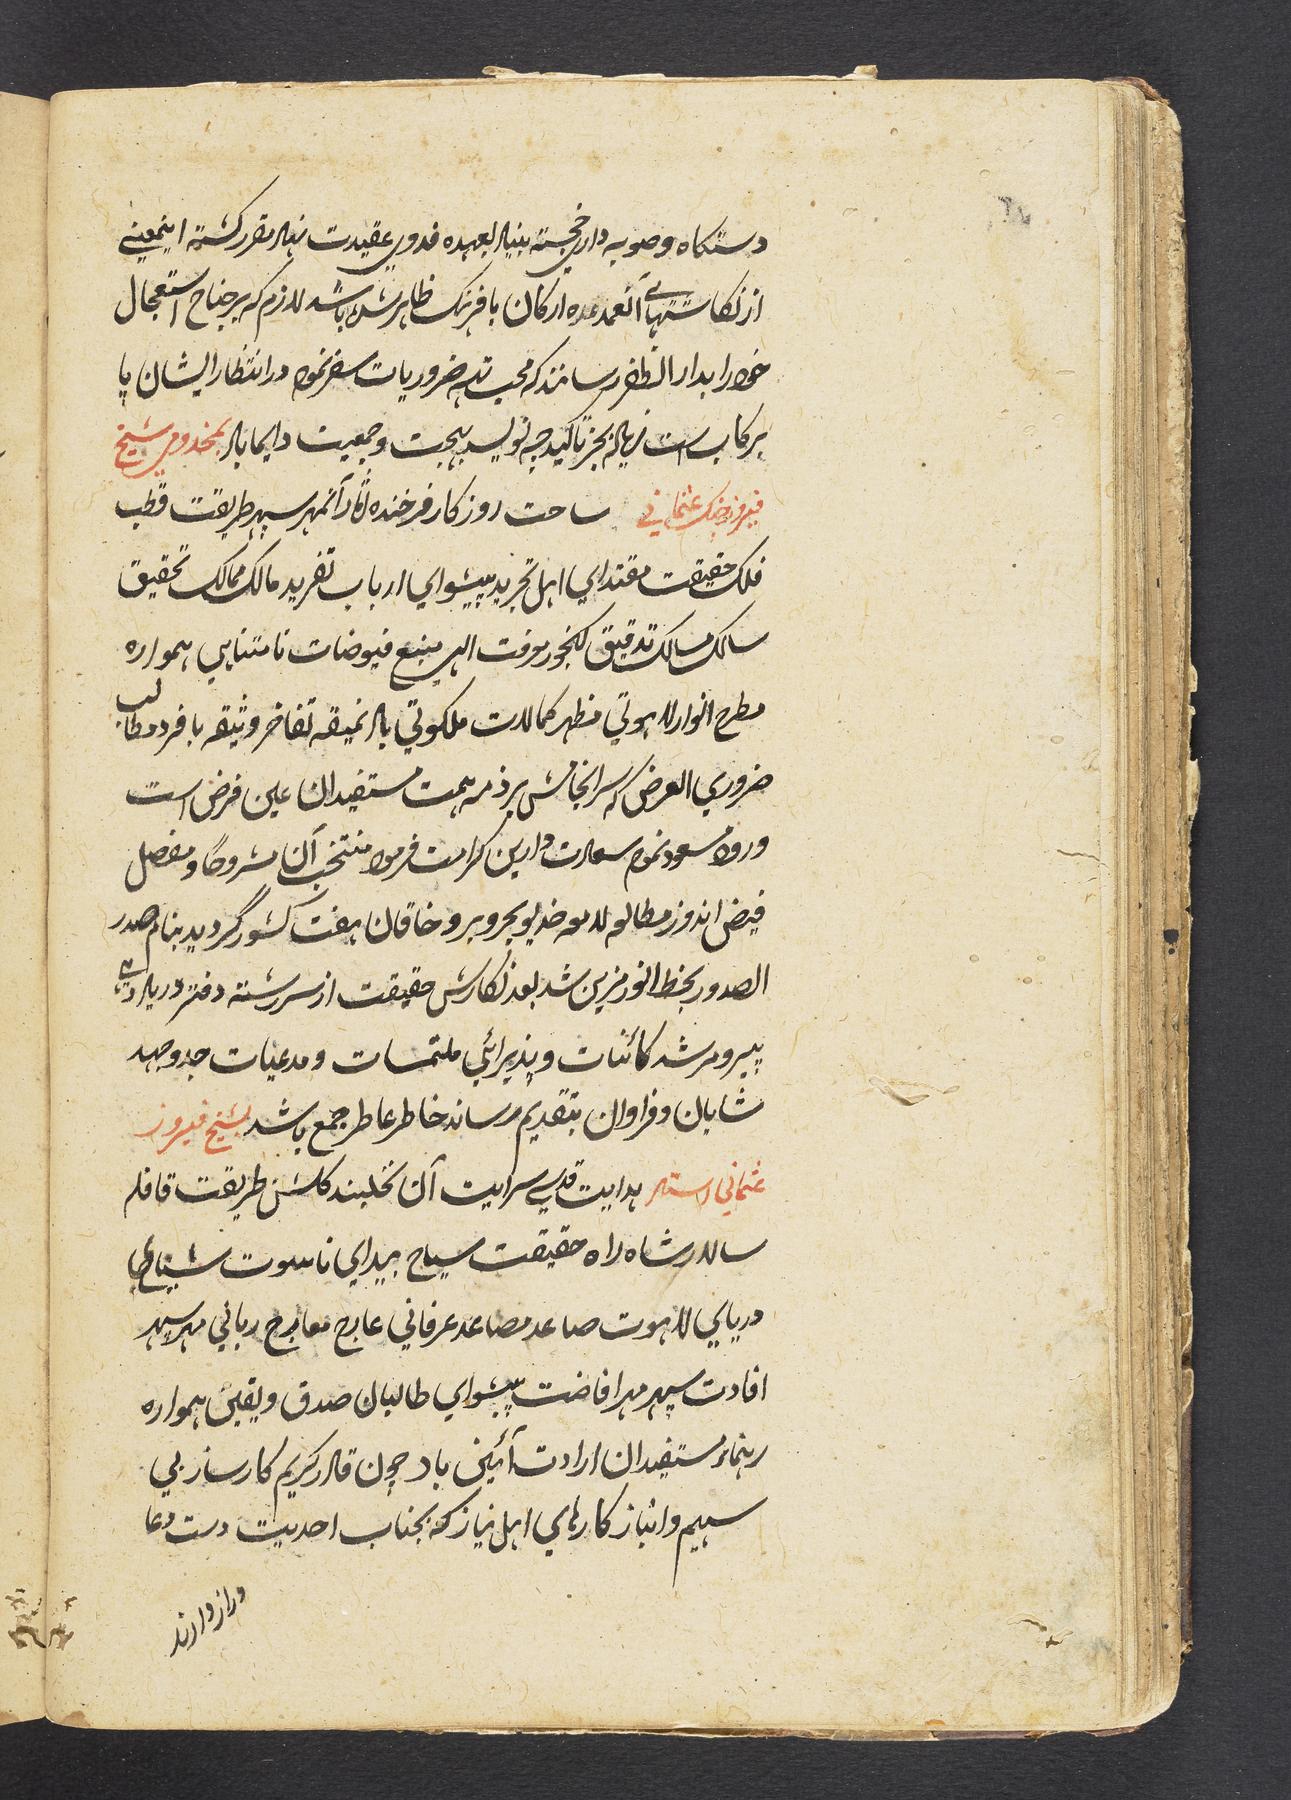 دستکاه وصوبه داری خجسته بنیاد بعهده فدوی عقیدت نهاد مقرر کشته اینمعنی
از نکاشتهای آنعمده ارکان بافرهنک ظاهر شده باشد لازم که بر جناح استعجال
خود را بدار الظفر رسانند که محب تهیه ضروریات سفر نموده در انتظار ایشان پا
برکاب است زیاده بجز تاکید چه نویسد بهجت وجمعیت دایما باد بمخدومی شیخ
فیروز عثمانی ساحت روزکار فرخنده اثار آنمهر سپهر طریقت قطب
فلک حقیقت مقتدای اهل تجرید پیشوای ارباب تفرید مالک ممالک تحقیق
سالک مسالک تدقیق کنجور معرفت الهی منبع فیوضات نامتناهی همواره
مطرح انوار لاهوتی مظهر کمالات ملکوتی باد نمیقه تفاخر وثیقه با فرد مطالب
ضروری العرض که سرانجامش بر ذمه همت مستفیدان عین فرض است
ورود مسعود نموده سعادت دارین کرامت فرمود منتخب آن مشروحا ومفصل
فیض اندوز مطالعه لامعه خدیو بحر وبر و خاقان هفت کشور گردید بنام صدر
الصدور بخط انور مزین شد بعد نکارش حقیقت از سررشته دفتر در یاد دهی
پیر ومرشد کائنات و پذیرائی ملتمسات ومدعیات جد وجهد
شایان وفراوان بتقدیم رساند خاطر عاطر جمع باشد بشیخ فیروز
عثمانی هدایت قدسی سرایت آن نخلبند کلشن طریقت قافله
سالار شاه راه حقیقت سیاح بیدای ناسوت سباح
دریای لاهوت صاعد مصاعد عرفانی عارج معارج ربانی مهر سپهر
افادت سپهر مهر افاضت پیشوای طالبان صدق ویقین همواره
رهنماء مستفیدان ارادت آئین باد چون قادر کریم کارساز بی
سهیم وانباز کارهای اهل نیاز که بجناب احدیت دست دعا
دراز دارند